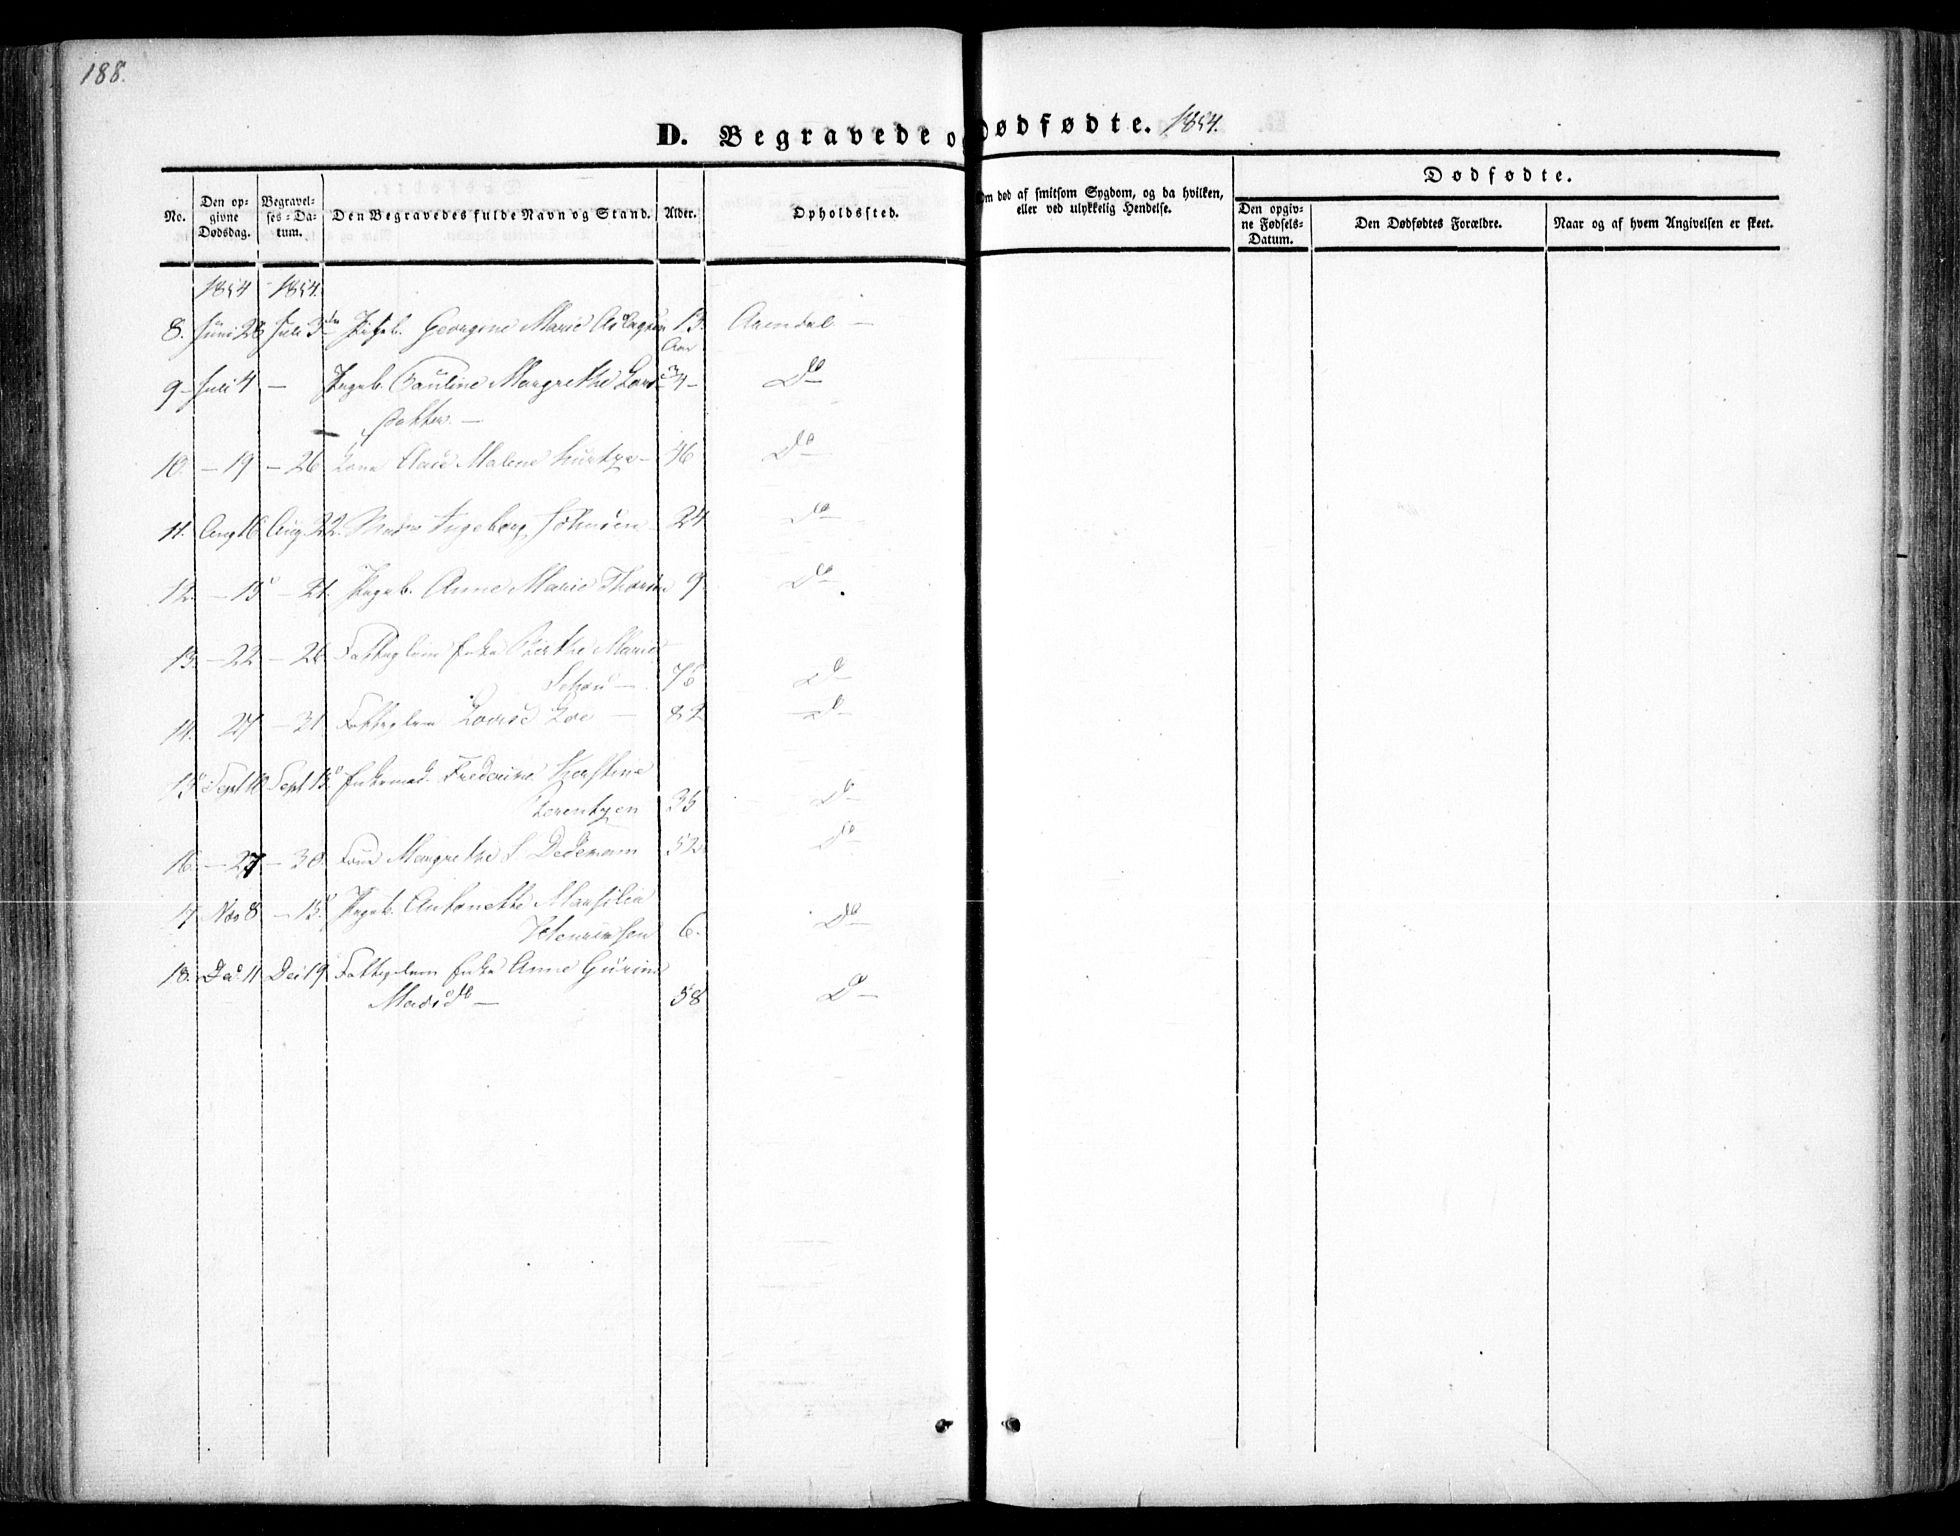 188.
D. Begravede og Dødfødte. 1854.
No. | Den opgivne Dødsdag. | Begravelses-Datum. | Den Begravedes fulde Navn og Stand. | Alder. | Opholdssted. | Om død af smitsom Sygdom, og da hvilken, eller ved ulykkelig Hendelse. | Dødfødte.
Den opgivne Fødsels-Datum. | Den Dødfødtes Forældre. | Naar og af hvem Angivelsen er skeet.
1854 1854.
8. Juni 28 Juli 3 Pigeb. Georgine Marie 13. Arendal —
Aar
9 – Juli 4 — Pigeb. Pauline Margrethe Lars 3/4 – Do –
datter. —
10. – 19 – 26 Malene – 46 Do –
11. Aug 16 Aug 22. Ingeborg Johnsen 24 Do –
12. – 15 – 21. Pigeb. Anne Marie 9 Do –
13. – 22 – 26. Fattiglem Enke Berthe Marie
Schou – 75 Do –
14. 27 – 31. Fattiglem Lovise – 82 Do –
15 Sept 10 Sept 15. Enkemad. Frederikke Kirstine
Lorentzen 35 Do –
16. – 27 – 30. Frue Margrethe S. Dedekam 52 Do –
17. Nov 8. – 15. Pigeb. Antonette
Henriksen 6. Do –
18. Dec. 11 Dec 19. Fattiglem Enke Anne Gurine
– 58 Do –